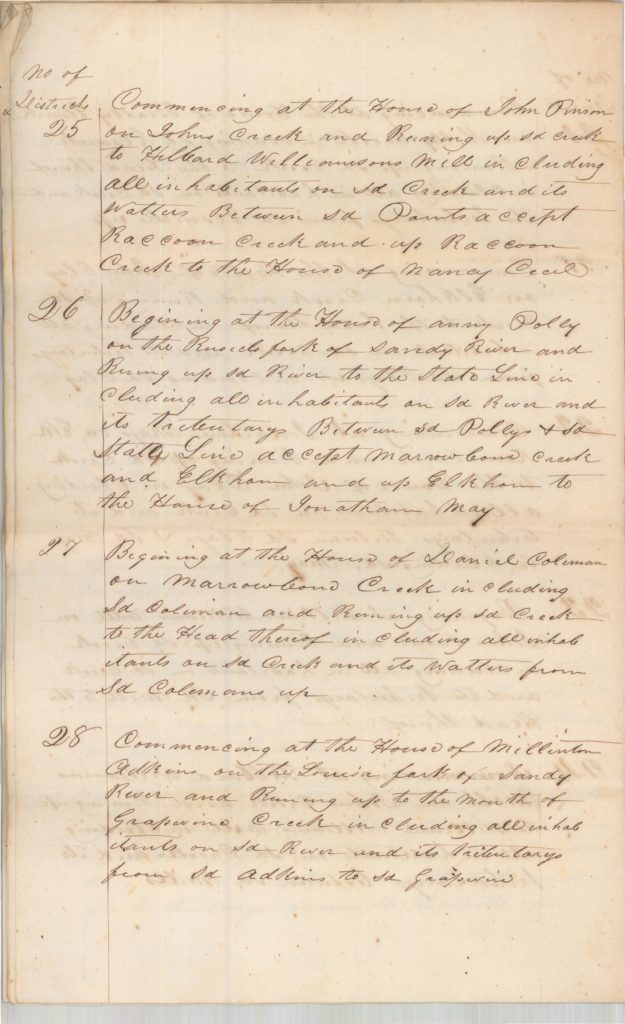 No of
Districts
25 Commencing at the House of John Pinson
on Johns Creek and Runing up sd creek
to Hilbard Williamsons Mill in cluding
all inhabitants on sd Creek and its
Watters Between sd Points accept
Raccoon Creek and up Raccoon
Creek to the House of Nancy Cecil
26 Begining at the House of anny Polly
on the Rusels fork of Sandy River and
Runing up sd River to the State Line in
cluding all inhabitants on sd River and
its tributarys Between sd Pollys & sd
State Line accept Marrowbone creek
and Elkhorn and up Elkhorn to
the House of Jonatham May
27 Begining at the House of Daniel Coleman
on Marrowbone Creek in cluding
sd Coleman and Runing up sd Creek
to the Head thereof in cluding all inhab
itants on sd Creek and its Watters from
sd Colemans up
28 Commencing at the House of Millinton
Adkins on the Louisa fork of Sandy
River and Runing up to the Mouth of
Grapevine Creek in cluding all inhab
itants on sd River and its tributarys
from sd Adkins to sd Grapevine